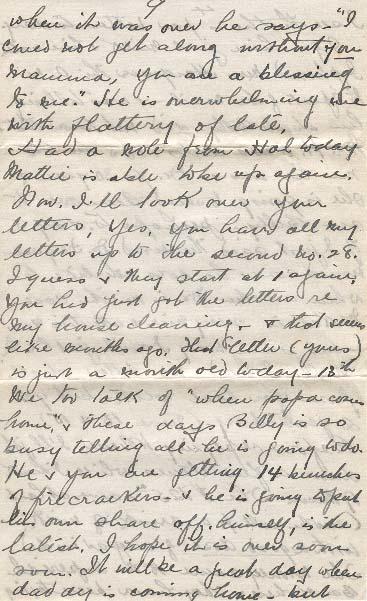 9
when it was over he says - "I
could not get along without you
Mamma, you are a blessing
to me." He is overwhelming me
with flattery of late.
Had a note from Hal today
Mattie is able to be up again.
Now. I'll look over your
letters, Yes, you have all my
letters up to the second no. 28.
I guess & they start at 1 again.
You had just got the letters re
my house cleaning. & that seems
like months ago. that letter (yours)
is just a month old today - 13th
We too talk of "when papa comes
home," & these days Billy is so
busy telling all he is going to do.
He & you are getting 14 bunches
of firecrackers - & he is going to put
his own share off himself, is the
latest. I hope it is over soon
soon. It will be a great day when
daddy is coming home - but